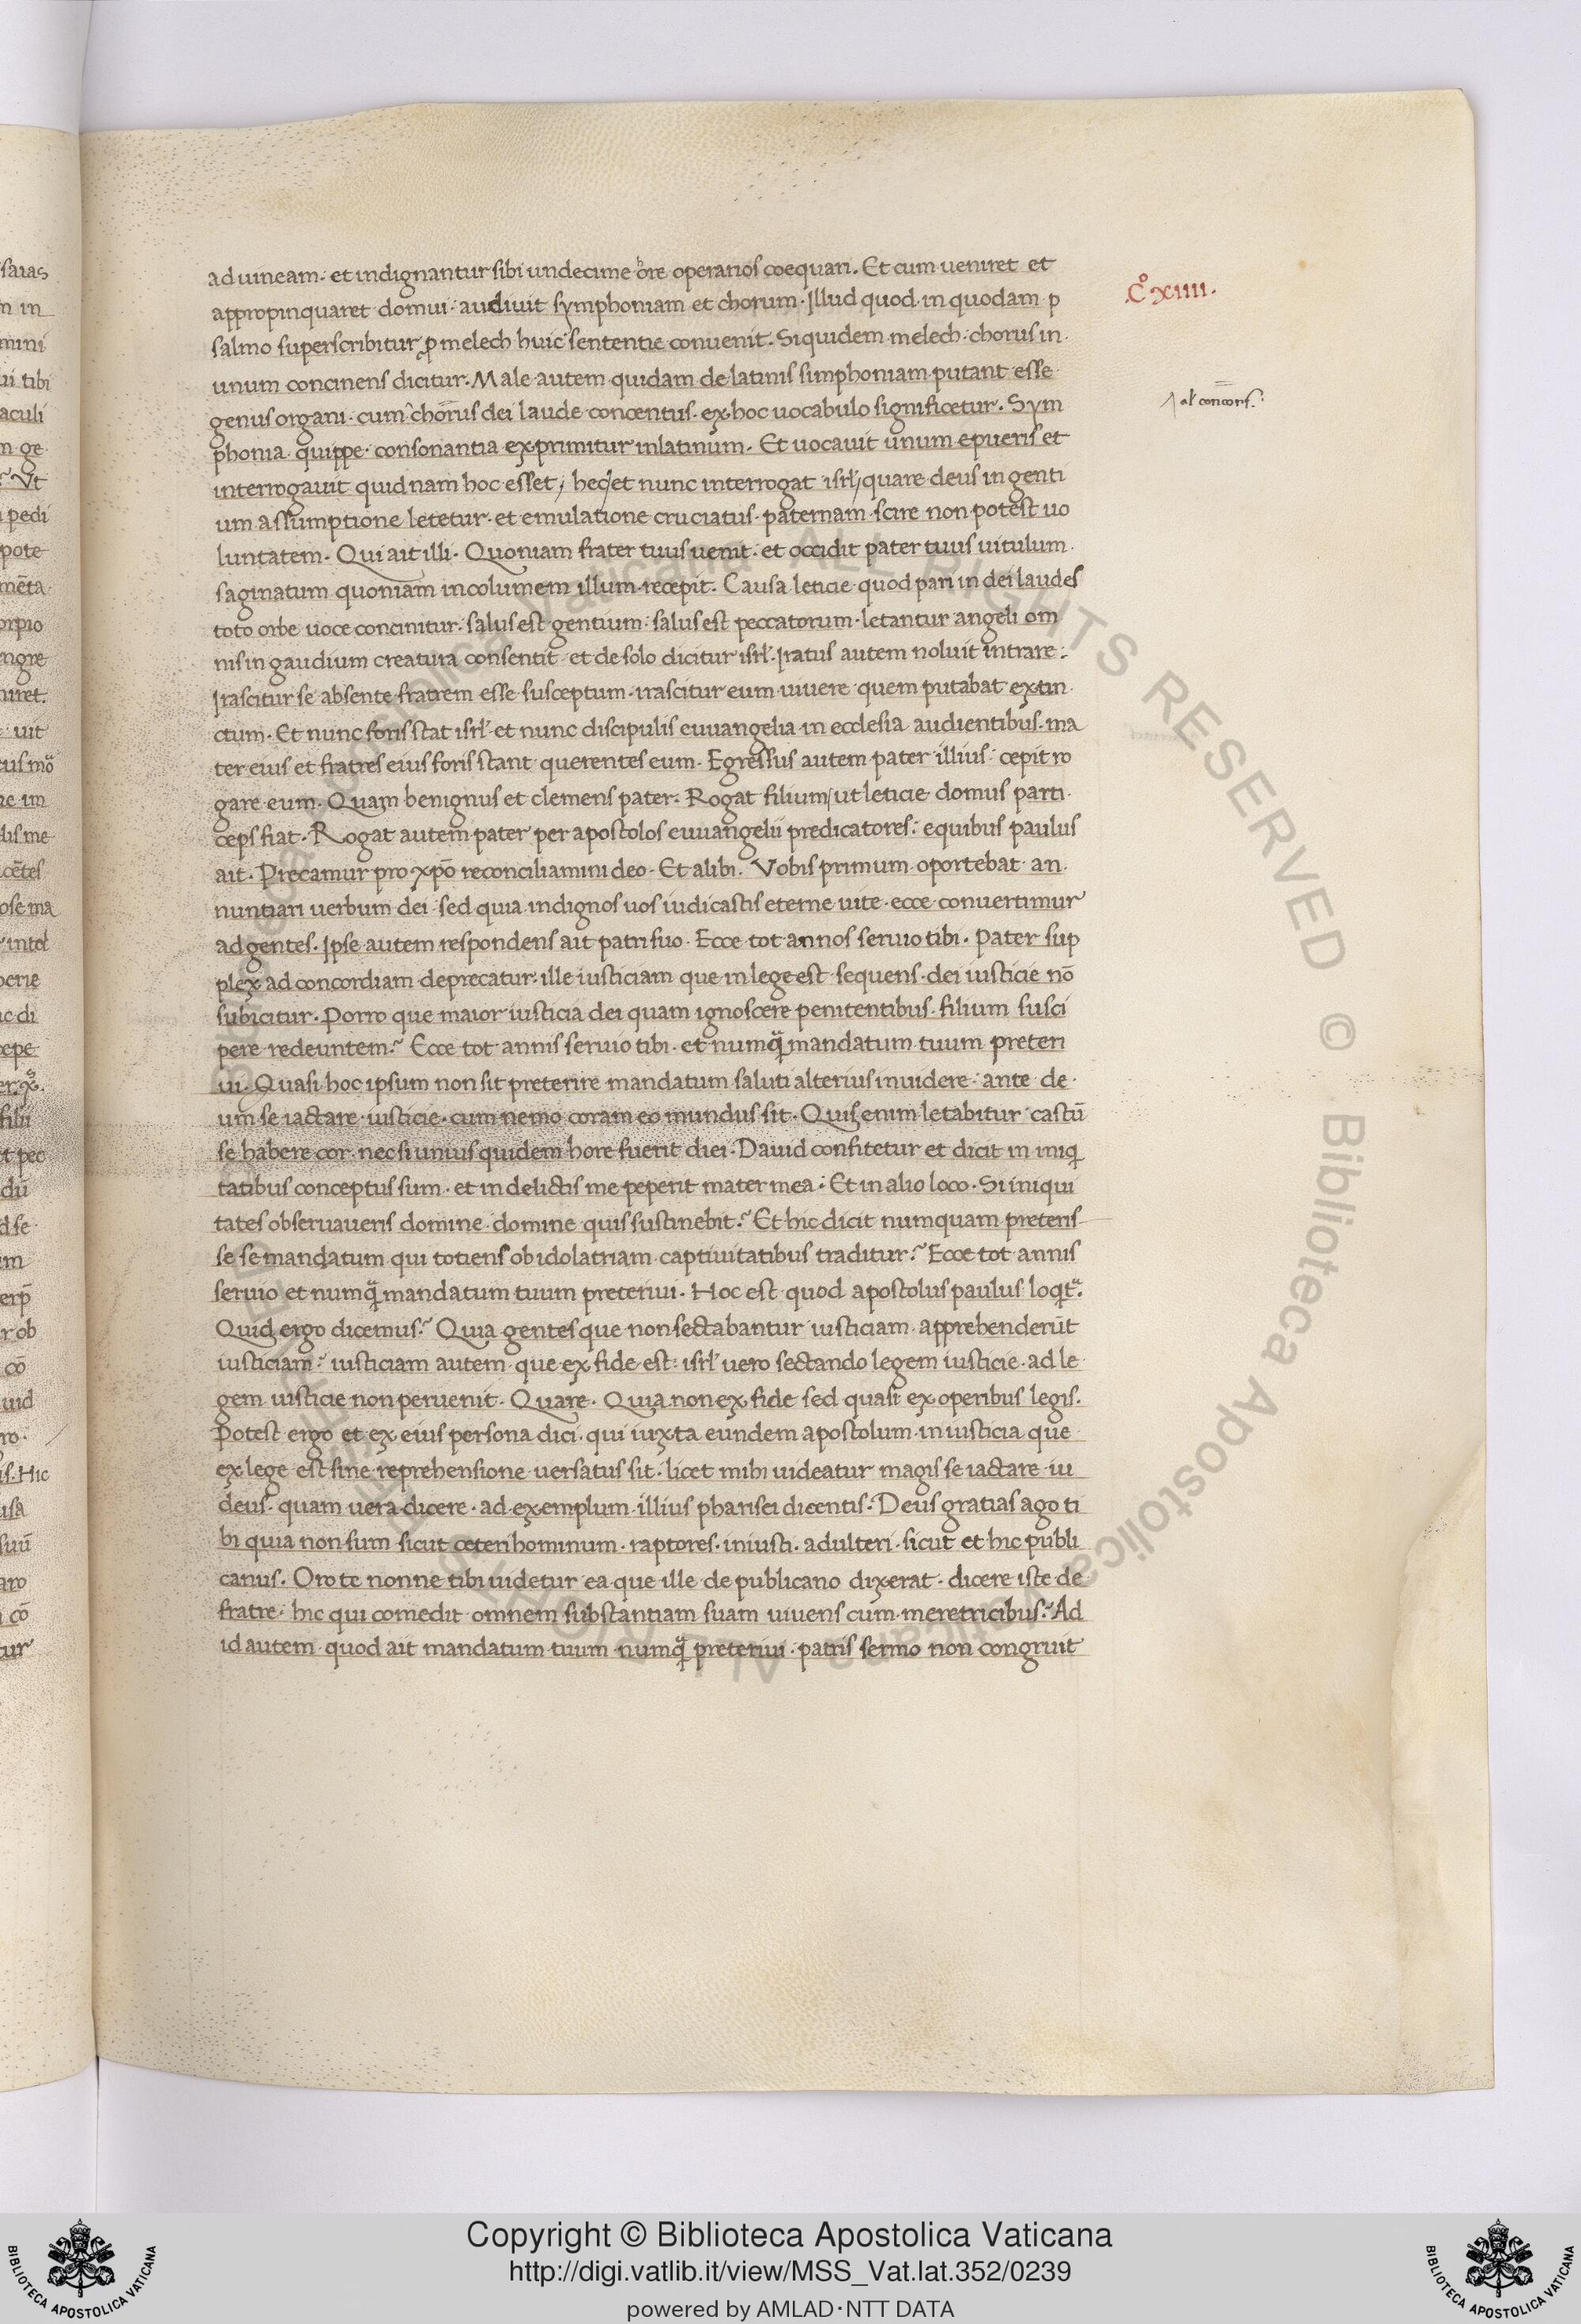 ad uineam· et indignantur sibi undecime hore operarios coequari. Et cum ueniret et
appropinquaret domui· audiuit symphoniam et chorum· Illud quod in quodam p
salmo superscribitur ꝓ melech huic sententie conuenit. Siquidem melech· chorus in
unum concinens dicitur. Male autem quidam de latinis simphoniam putant esse
genus organi· cum chorus dei laude concentus· ex hoc uocabulo significetur. Sym
phonia quippe· consonantia exprimitur in latinum. Et uocauit unum e pueris et
interrogauit quid nam hoc esset, hec et nunc interrogat isrl', quare deus in genti
um assumptione letetur· et emulatione cruciatus· paternam scire non potest uo
luntatem· Qui ait illi· Quoniam frater tuus uenit· et occidit pater tuus uitulum
saginatum quoniam incolumem illum recepit. Causa leticie quod pari in dei laudes
toto orbe uoce concinitur· salus est gentium· salus est peccatorum· letantur angeli om
nis in gaudium creatura consentit et de solo dicitur isrl'· Iratus autem noluit intrare·
Irascitur se absente fratrem esse susceptum· irascitur eum uiuere quem putabat extin
ctum· Et nunc foris stat isrl' et nunc discipulis euuangelia in ecclesia audientibus· ma
ter eius et fratres eius foris stant querentes eum. Egressus autem pater illius· cepit ro
gare eum· Quam benignus et clemens pater. Rogat filium, ut leticie domus parti
ceps fiat· Rogat autem pater per apostolos euuangelii predicatores· e quibus paulus
ait· Precamur pro xpō reconciliamini deo· Et alibi. Vobis primum oportebat an
nuntiari uerbum dei· sed quia indignos uos iudicastis eterne uite· ecce conuertimur
ad gentes. Ipse autem respondens ait patri suo· Ecce tot annos seruio tibi. Pater sup
plex ad concordiam deprecatur· ille iusticiam que in lege est sequens· dei iusticie nō
subicitur· Porro que maior iusticia dei quam ignoscere penitentibus· filium susci
pere redeuntem? Ecce tot annis seruio tibi· et numꝙ̃ mandatum tuum preteri
ui· Quasi hoc ipsum non sit preterire mandatum saluti alterius inuidere· ante de
um se iactare iusticie· cum nemo coram eo mundus sit· Quis enim letabitur castū
se habere cor· nec si unius quidem hore fuerit diei· Dauid confitetur et dicit in iniq̱
tatibus conceptus sum· et in delictis me peperit mater mea· Et in alio loco· Si iniqui
tates obseruaueris domine· domine quis sustinebit? Et hic dicit numquam preteris
se se mandatum qui totiens ob idolatriam captiuitatibus traditur? Ecce tot annis
seruio et numꝙ̃ mandatum tuum preteriui· Hoc est quod apostolus paulus loqt̃.
Quid ergo dicemus? Quia gentes que non sectabantur iusticiam· apprehenderūt
iusticiam? iusticiam autem que ex fide est· isrl' uero sectando legem iusticie· ad le
gem iusticie non peruenit. Quare· Quia non ex fide sed quasi ex operibus legis.
Potest ergo et ex eius persona dici· qui iuxta eundem apostolum in iusticia que
ex lege est sine reprehensione uersatus sit· licet mihi uideatur magis se iactare iu
deus· quam uera dicere· ad exemplum illius pharisei dicentis· Deus gratias ago ti
bi quia non sum sicut ceteri hominum· raptores· iniusti· adulteri· sicut et hic publi
canus. Oro te nonne tibi uidetur ea que ille de publicano dixerat· dicere iste de
fratre· hic qui comedit omnem substantiam suam uiuens cum meretricibus? Ad
id autem quod ait mandatum tuum numꝙ̃ preteriui· patris sermo non congruit
.C° xiiii.
saias
mini
ui tibi
aculi
Vt
pedi
pote
mēta
orpio
uit
ose ma
Hic
BIBLIOTECA APOSTOLICA VATICANA
Copyright © Biblioteca Apostolica Vaticana
http://digi.vatlib.it/view/MSS_Vat.lat.352/0239
powered by AMLAD·NTT DATA
BIBLIOTECA APOSTOLICA VATICANA
© Biblioteca Apostolica Vaticana ALL RIGHTS RESERVED